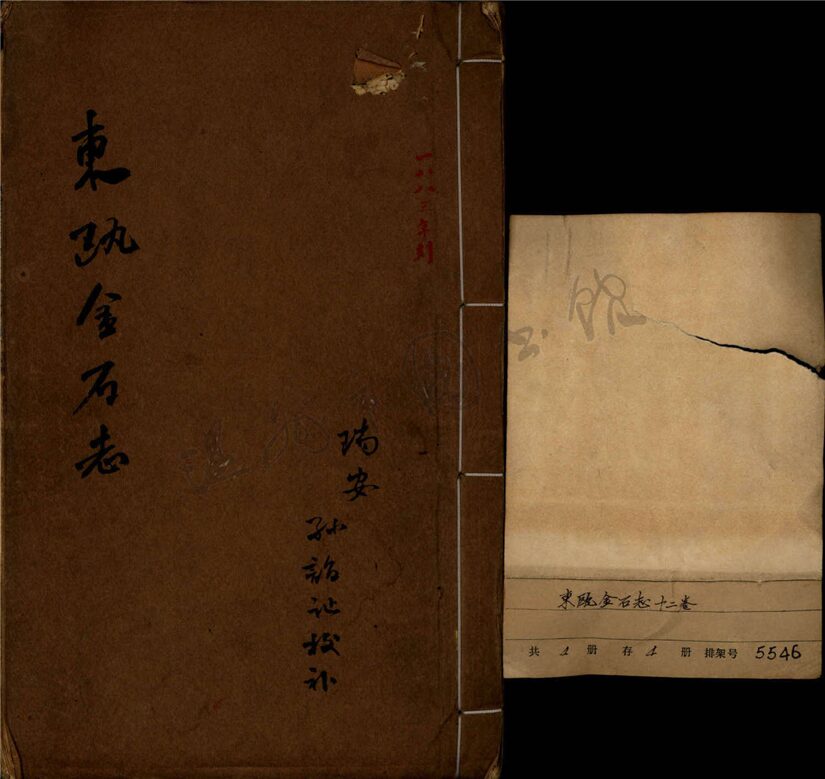 東瓯金石志
一八八三年刻
瑞安
孙詒让校补
東瓯金石志十二卷
共 1 册 存 1 册 排架号 5546